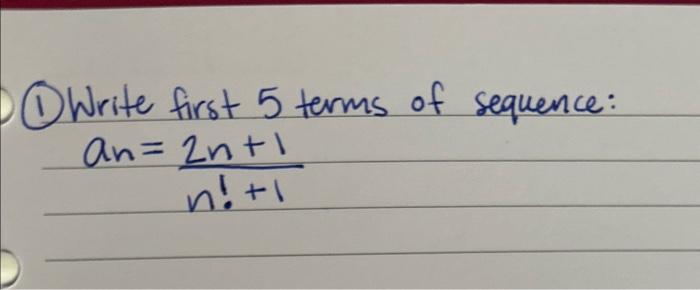 ① Write first 5 terms of sequence:
an = 2n+1
n! +1